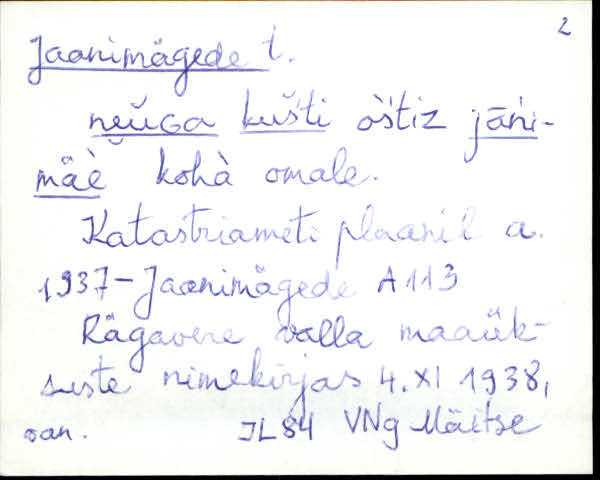 2
Jaanimägede t.
neŭGa kušti òs̀tiz jāńi-
mäè kohà omale.
Katastriameti plaanil a.
1937 - Jaanimägede A 113
Rägavere valla maaük-
suste nimekirjas 4. XI 1938,
van. JL 84 VNg Mäetse